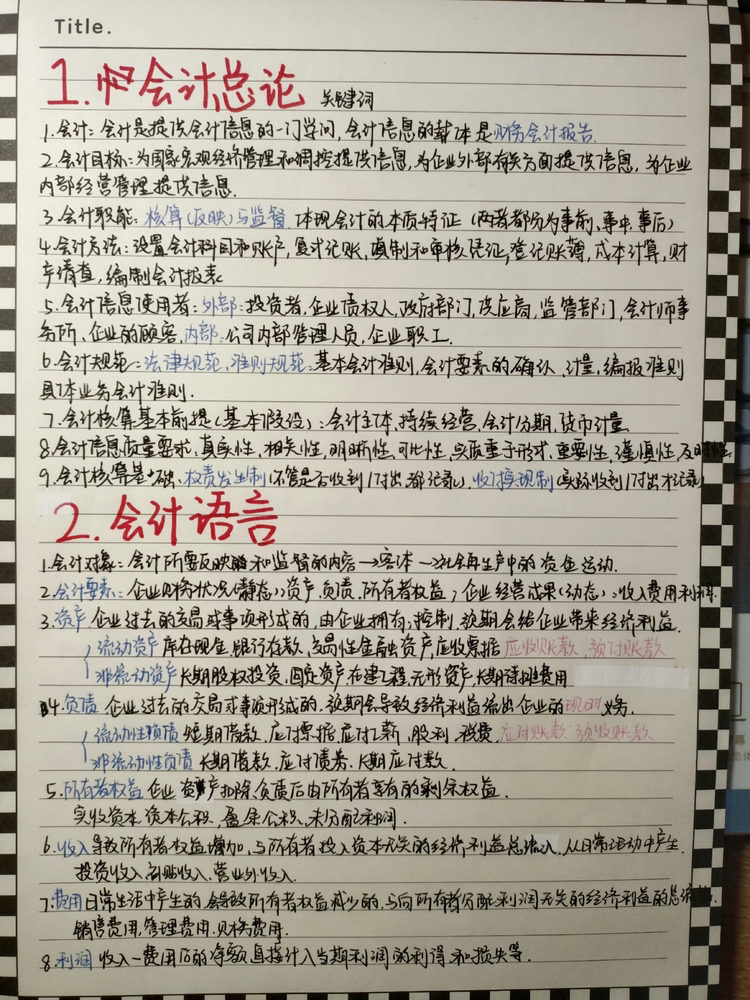 Title.
1. 会计总论 关键词
1.会计：会计是提供会计信息的一门学问，会计信息的载体是财务会计报告.
2.会计目标：为国家宏观经济管理和调控提供信息，为企业外部有关方面提供信息，为企业
内部经营管理提供信息.
3.会计职能：核算(反映)与监督.体现会计的本质特征（两者都分为事前、事中、事后）
4.会计方法：设置会计科目和账户，复式记账，填制和审核凭证，登记账簿，成本计算，财
产清查，编制会计报表
5.会计信息使用者：外部：投资者，企业债权人，政府部门，供应商，监管部门，会计师事
务所、企业的顾客，内部：公司内部管理人员，企业职工.
6.会计规范：法律规范、准则规范：基本会计准则，会计要素的确认、计量，编报准则
具体业务会计准则.
7.会计核算基本前提（基本假设）：会计主体，持续经营，会计分期，货币计量.
8.会计信息质量要求.真实性，相关性，明晰性，可比性，实质重于形式，重要性，谨慎性，及时性.
9.会计核算基础：权责发生制(不管是否收到/付出，都记录)，收付实现制(实际收到/付出才记录)
2.会计语言
1.会计对象：会计所要反映和监督的内容→客体→社会再生产中的资金运动.
2.会计要素：企业财务状况(静态)：资产.负债.所有者权益；企业经营成果(动态)：收入费用利润.
3.资产.企业过去的交易或事项形成的，由企业拥有，控制.预期会给企业带来经济利益.
流动资产 库存现金.银行存款、交易性金融资产应收票据 应收账款，预付账款
非流动资产 长期股权投资、固定资产在建工程.无形资产.长期待摊费用
4.负债 企业过去的交易或事项形成的，预期会导致经济利益流出企业的现时义务.
流动性负债 短期借款，应付票据，应付工薪，股利，税费，应付账款 预收账款
非流动性负债 长期借款.应付债券、长期应付款.
5.所有者权益 企业资产扣除负债后由所有者享有的剩余权益.
实收资本、资本公积、盈余公积、未分配利润.
6.收入导致所有者权益增加，与所有者投入资本无关的经济利益总流入.从日常活动中产生.
投资收入、补贴收入、营业外收入.
7.费用日常生活中产生的，会导致所有者权益减少的，与向所有者分配利润无关的经济利益的总流出.
销售费用，管理费用.财务费用.
8.利润 收入－费用后的净额，直接计入当期利润的利得和损失等.